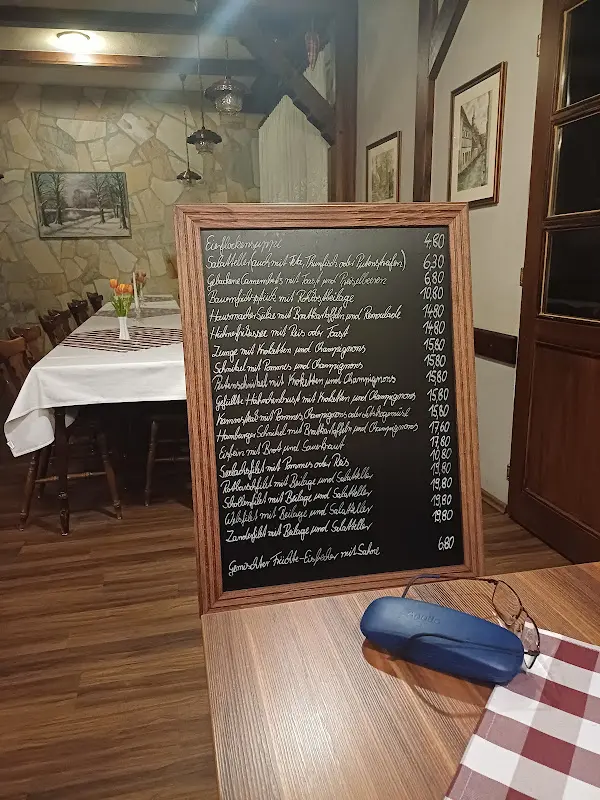 Eierflockensuppe 4,80
Salatteller (auch mit Feta, Thunfisch oder Putenstreifen) 6,30
Gebackene Camemberts mit Toast und Preiselbeeren 6,80
Bauernfrühstück mit Rohkostbeilage 10,80
Hausmacher Sülze mit Bratkartoffeln und Remoulade 14,80
Hühnerfrikassee mit Reis oder Toast 14,80
Zunge mit Kroketten und Champignons 15,80
Schnitzel mit Pommes und Champignons 15,80
Putenschnitzel mit Kroketten und Champignons 15,80
Gefüllte Hähnchenbrust mit Kroketten und Champignons 15,80
Kammsteak mit Pommes, Champignons oder 15,80
Hamburger Schnitzel mit Bratkartoffeln und Champignons 17,60
Eisbein mit Brot und Sauerkraut 17,80
Seelachsfilet mit Pommes oder Reis 10,80
Rotbarschfilet mit Beilage und Salatteller 19,80
Schollenfilet mit Beilage und Salatteller 19,80
Welsfilet mit Beilage und Salatteller 19,80
Zanderfilet mit Beilage und Salatteller 19,80
Gemischter Früchte-Eisbecher mit Sahne 6,80